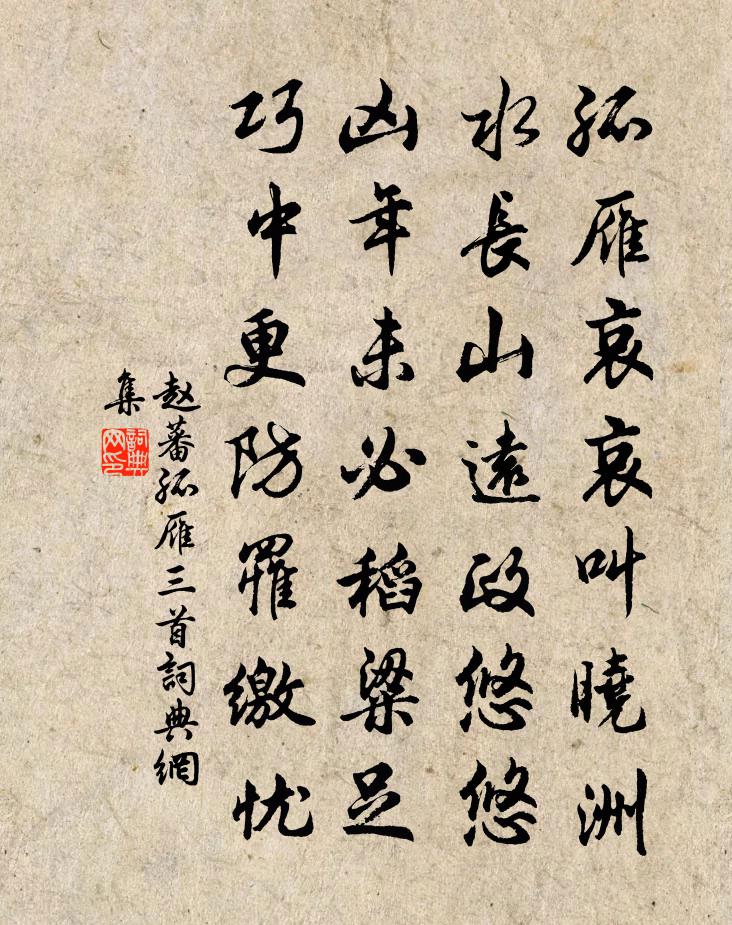 孤雁哀哀叫曉洲
水長山遠政悠悠
凶年未必稻粱足
巧中更防羅繳忧
赵蕃孤雁三首詞典網
集
詞典網印